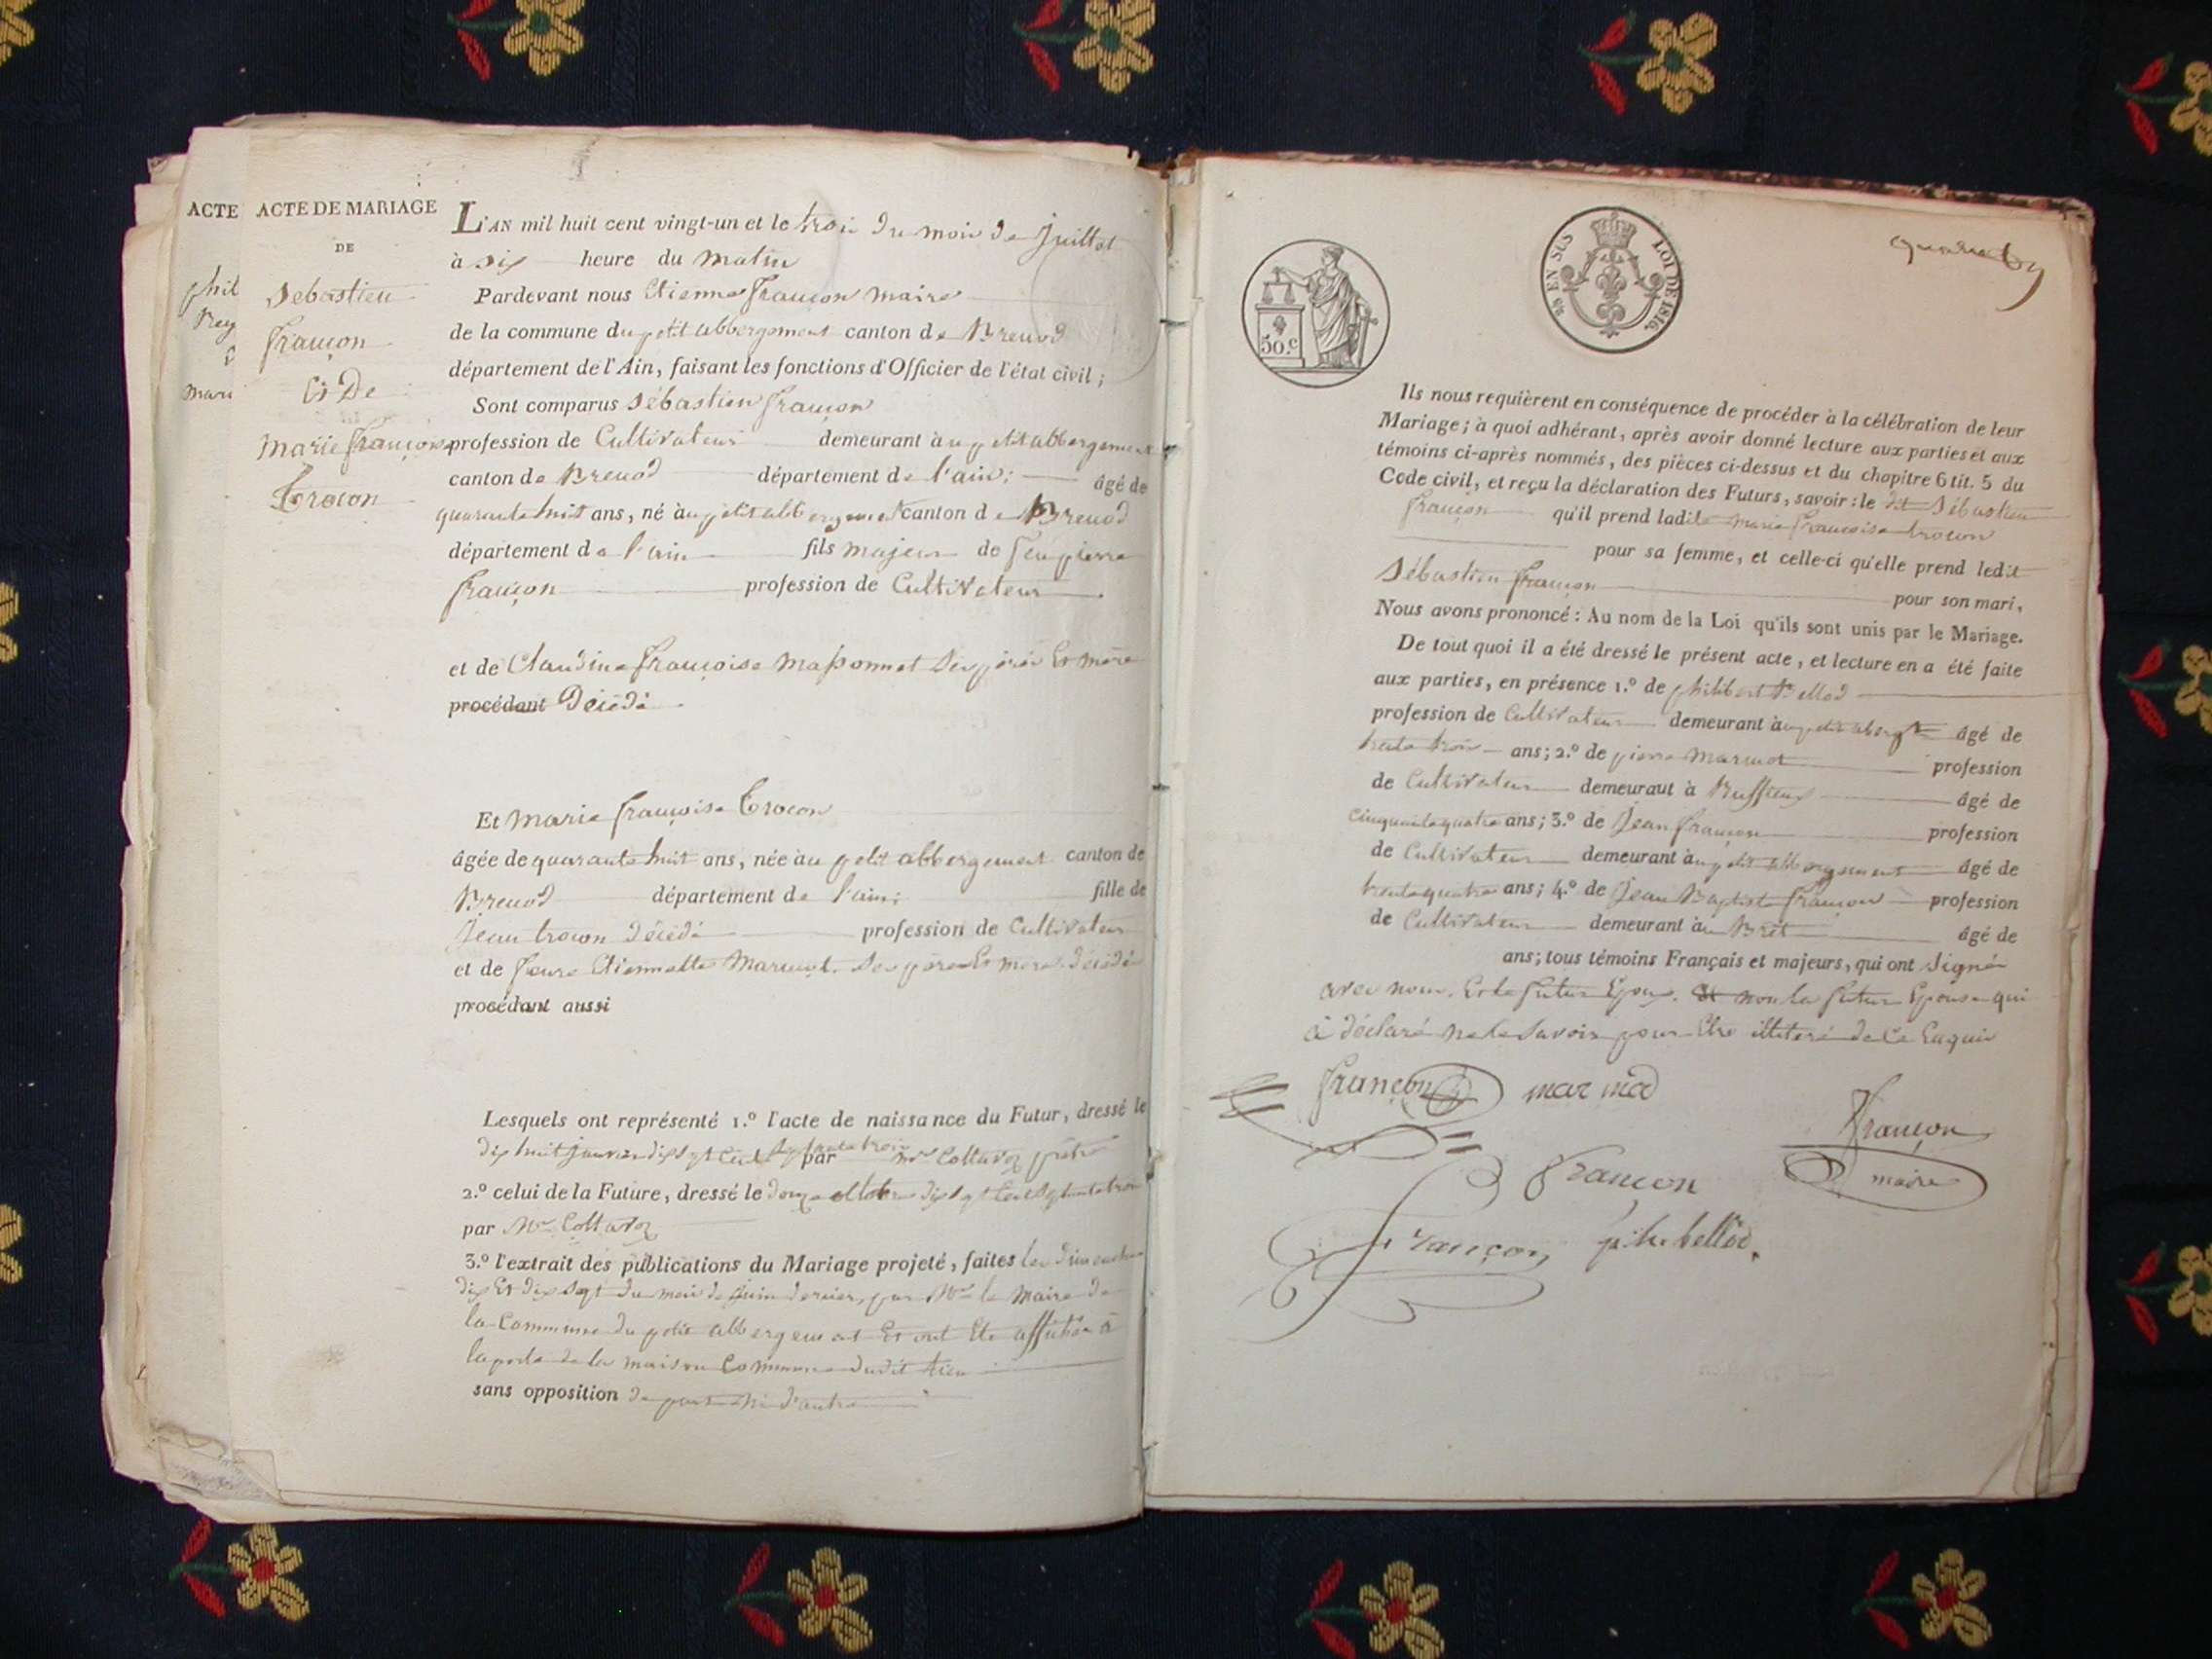 ACTE
phil
Rey
mari
ACTE DE MARIAGE
DE
Sebastien
françon
Et De
Marie françoise
Trocon
L'AN mil huit cent vingt-un et le trois du mois de Juillet
à six heure du matin
Pardevant nous Etienne françon Maire
de la commune du petit abbergement canton de Brenod
département de l'Ain, faisant les fonctions d'Officier de l'état civil ;
Sont comparus Sébastien françon
profession de Cultivateur demeurant à au petit abbergement
canton de Brenod département de l'ain: âgé de
quarante huit ans, né à au petit abbergement canton de Brenod
département de l'ain fils majeur de feu pierre
françon profession de Cultivateur
et de Claudine françoise Massonnet Ses père Et mère
procédant Décédé
Et Marie françoise Trocon
âgée de quarante huit ans, née à au petit abbergement canton de
Brenod département de l'ain: fille de
Jean trocon décédé profession de Cultivateur
et de feure Etiennette Marmet Ses père Et mère décédé
procédant aussi
Lesquels ont représenté 1.º l'acte de naissance du Futur, dressé le
dix huit janvier dix sept cent septante trois par Mr Collavoz prêtre
2.º celui de la Future, dressé le douze octobre dix sept cent septante trois
par Mr Collavoz
3.º l'extrait des publications du Mariage projeté, faites les dimanches
dix Et dix sept du mois de Juin dernier, par Mr le Maire de
la Commune du petit abbergement Et ont Eté affiché à
la porte de la maison Commune dudit lieu
sans opposition de part ni d'autre
50.c
25 EN SUS
LOI DE 1816.
Ils nous requièrent en conséquence de procéder à la célébration de leur
Mariage ; à quoi adhérant, après avoir donné lecture aux parties et aux
témoins ci-après nommés, des pièces ci-dessus et du chapitre 6 tit. 5 du
Code civil, et reçu la déclaration des Futurs, savoir : le dit Sébastien
françon qu'il prend ladite marie françoise trocon
pour sa femme, et celle-ci qu'elle prend ledit
Sébastien françon pour son mari,
Nous avons prononcé : Au nom de la Loi qu'ils sont unis par le Mariage.
De tout quoi il a été dressé le présent acte, et lecture en a été faite
aux parties, en présence 1.º de philibert Bellod
profession de Cultivateur demeurant à au petit abergt âgé de
trente trois ans ; 2.º de pierre Marmet profession
de Cultivateur demeuraut à Ruffieux âgé de
cinquante quatre ans ; 3.º de Jean françon profession
de Cultivateur demeurant à au petit abbergement âgé de
trente quatre ans ; 4.º de Jean Baptiste françon profession
de Cultivateur demeurant à au Bret âgé de
ans ; tous témoins Français et majeurs, qui ont Signé
avec nous. Et le futur Epoux. Et non la future Epouse qui
à déclaré ne le Savoir pour Etre illiteré de Ce Enquis
françon mar med
françon
maire
françon
françon ph. bellod.